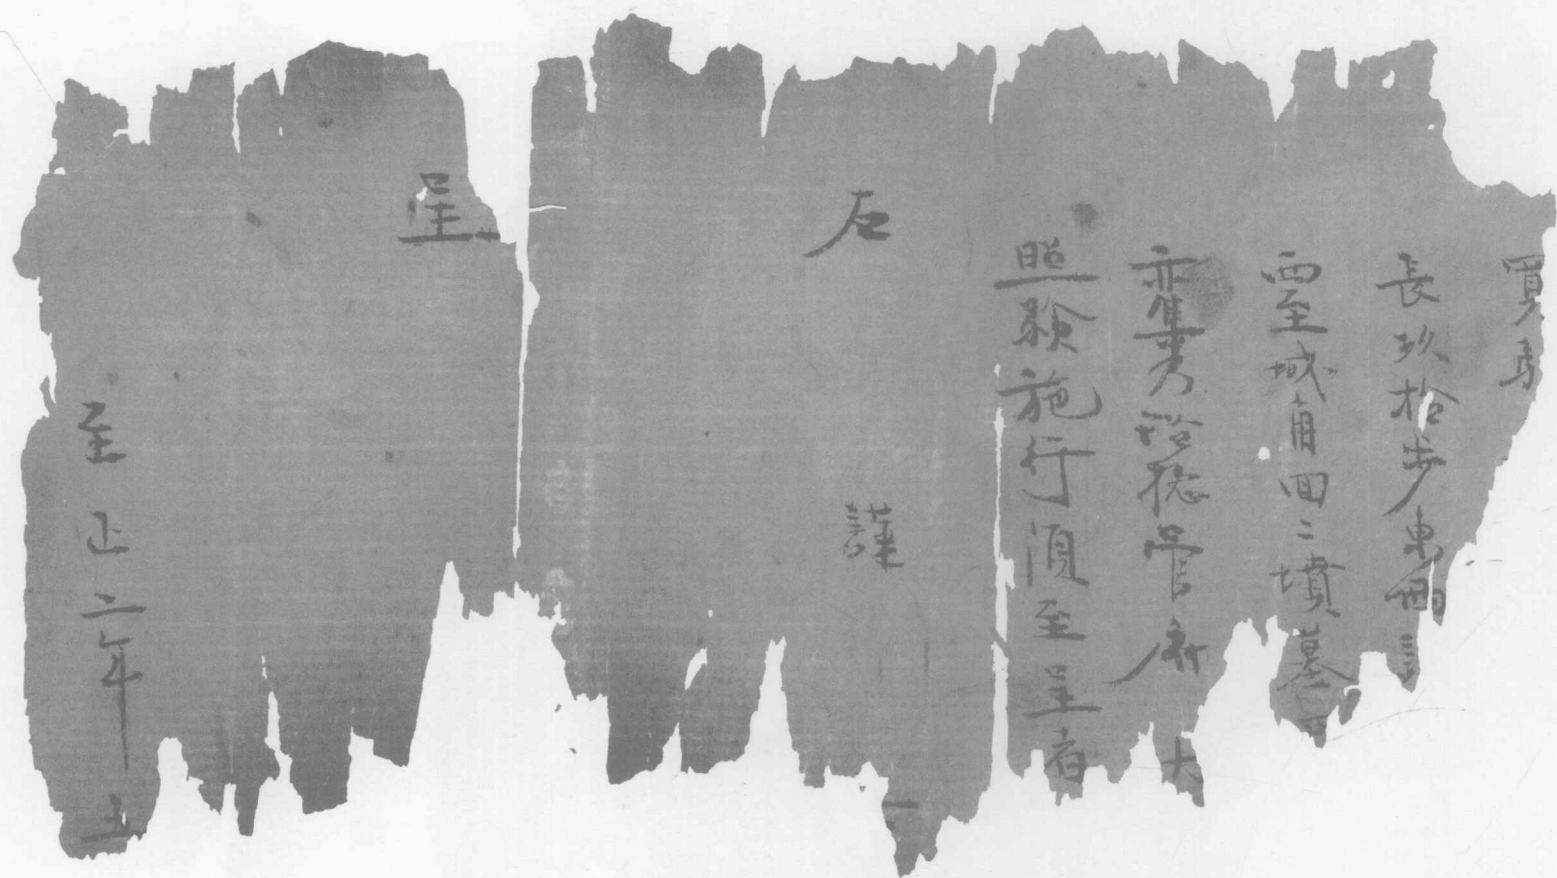 買馬
長玖拾步東西
西至城角四至墳墓
亦集乃路揔管府
照驗施行須至呈者
右謹
呈
至正二年五